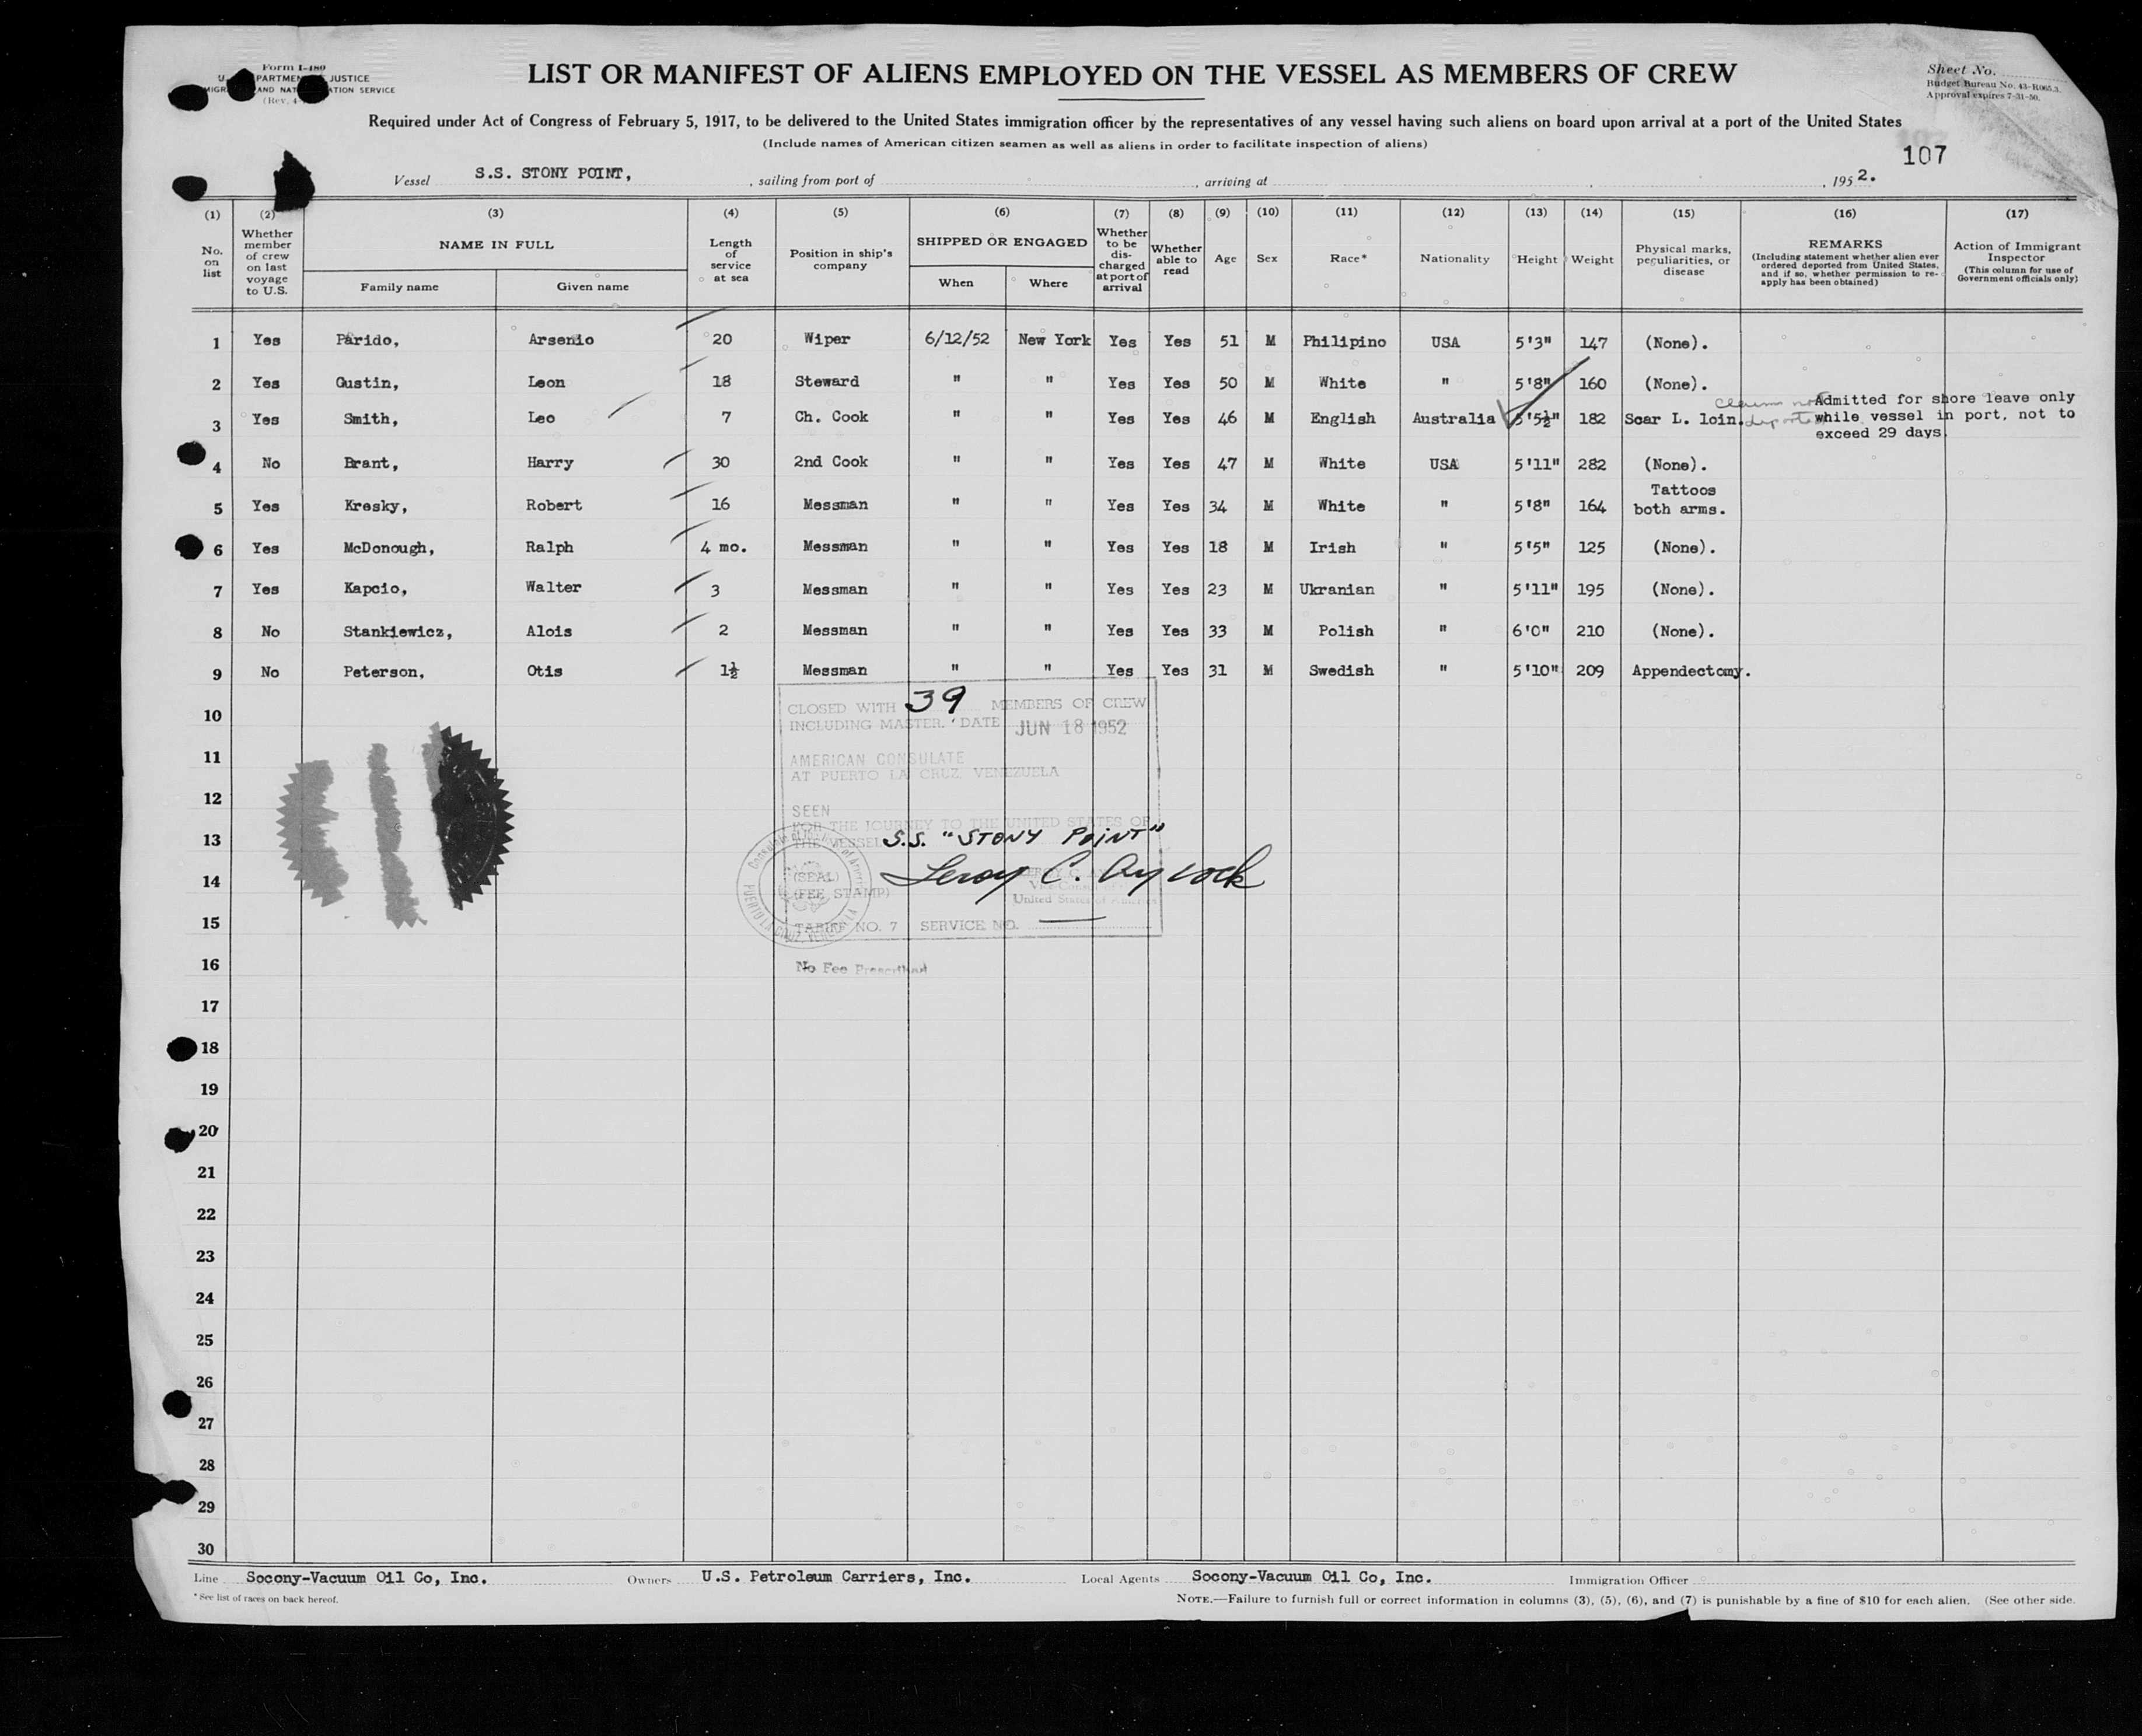 Form I-489
U. PARTMEN JUSTICE
MIGR AND NAT ATION SERVICE
(Rev. 4
LIST OR MANIFEST OF ALIENS EMPLOYED ON THE VESSEL AS MEMBERS OF CREW
Sheet No.
Budget Bureau No. 43-R065.3.
Approval expires 7-31-50.
Required under Act of Congress of February 5, 1917, to be delivered to the United States immigration officer by the representatives of any vessel having such aliens on board upon arrival at a port of the United States
(Include names of American citizen seamen as well as aliens in order to facilitate inspection of aliens)
107
Vessel S.S. STONY POINT, , sailing from port of , arriving at , 1952.
(1) (2) (3) (4) (5) (6) (7) (8) (9) (10) (11) (12) (13) (14) (15) (16) (17)
No. on list Whether member of crew on last voyage to U.S. NAME IN FULL Family name Given name Length of service at sea Position in ship's company SHIPPED OR ENGAGED When Where Whether to be discharged at port of arrival Whether able to read Age Sex Race* Nationality Height Weight Physical marks, peculiarities, or disease REMARKS (Including statement whether alien ever ordered deported from United States, and if so, whether permission to re-apply has been obtained) Action of Immigrant Inspector (This column for use of Government officials only)
1 Yes Parido, Arsenio 20 Wiper 6/12/52 New York Yes Yes 51 M Philipino USA 5'3" 147 (None).
2 Yes Gustin, Leon 18 Steward " " Yes Yes 50 M White " 5'8" 160 (None).
3 Yes Smith, Leo 7 Ch. Cook " " Yes Yes 46 M English Australia 5'5½" 182 Scar L. loin. Admitted for shore leave only
while vessel in port, not to
exceed 29 days.
4 No Brant, Harry 30 2nd Cook " " Yes Yes 47 M White USA 5'11" 282 (None).
5 Yes Kresky, Robert 16 Messman " " Yes Yes 34 M White " 5'8" 164 Tattoos both arms.
6 Yes McDonough, Ralph 4 mo. Messman " " Yes Yes 18 M Irish " 5'5" 125 (None).
7 Yes Kapcio, Walter 3 Messman " " Yes Yes 23 M Ukranian " 5'11" 195 (None).
8 No Stankiewicz, Alois 2 Messman " " Yes Yes 33 M Polish " 6'0" 210 (None).
9 No Peterson, Otis 1½ Messman " " Yes Yes 31 M Swedish " 5'10" 209 Appendectomy.
10
CLOSED WITH 39 MEMBERS OF CREW
INCLUDING MASTER. DATE JUN 18 1952
11
AMERICAN CONSULATE
AT PUERTO LA CRUZ, VENEZUELA
12
SEEN
FOR THE JOURNEY TO THE UNITED STATES OF
13
THE VESSEL S.S. "STONY POINT"
14
(SEAL) Leroy C. Aycock
(FEE STAMP)
United States of America
15
TARIFF NO. 7 SERVICE NO.
16
No Fee Prescribed
17
18
19
20
21
22
23
24
25
26
27
28
29
30
Line Socony-Vacuum Oil Co, Inc. Owners U.S. Petroleum Carriers, Inc. Local Agents Socony-Vacuum Oil Co, Inc. Immigration Officer
*See list of races on back hereof. NOTE.—Failure to furnish full or correct information in columns (3), (5), (6), and (7) is punishable by a fine of $10 for each alien. (See other side.